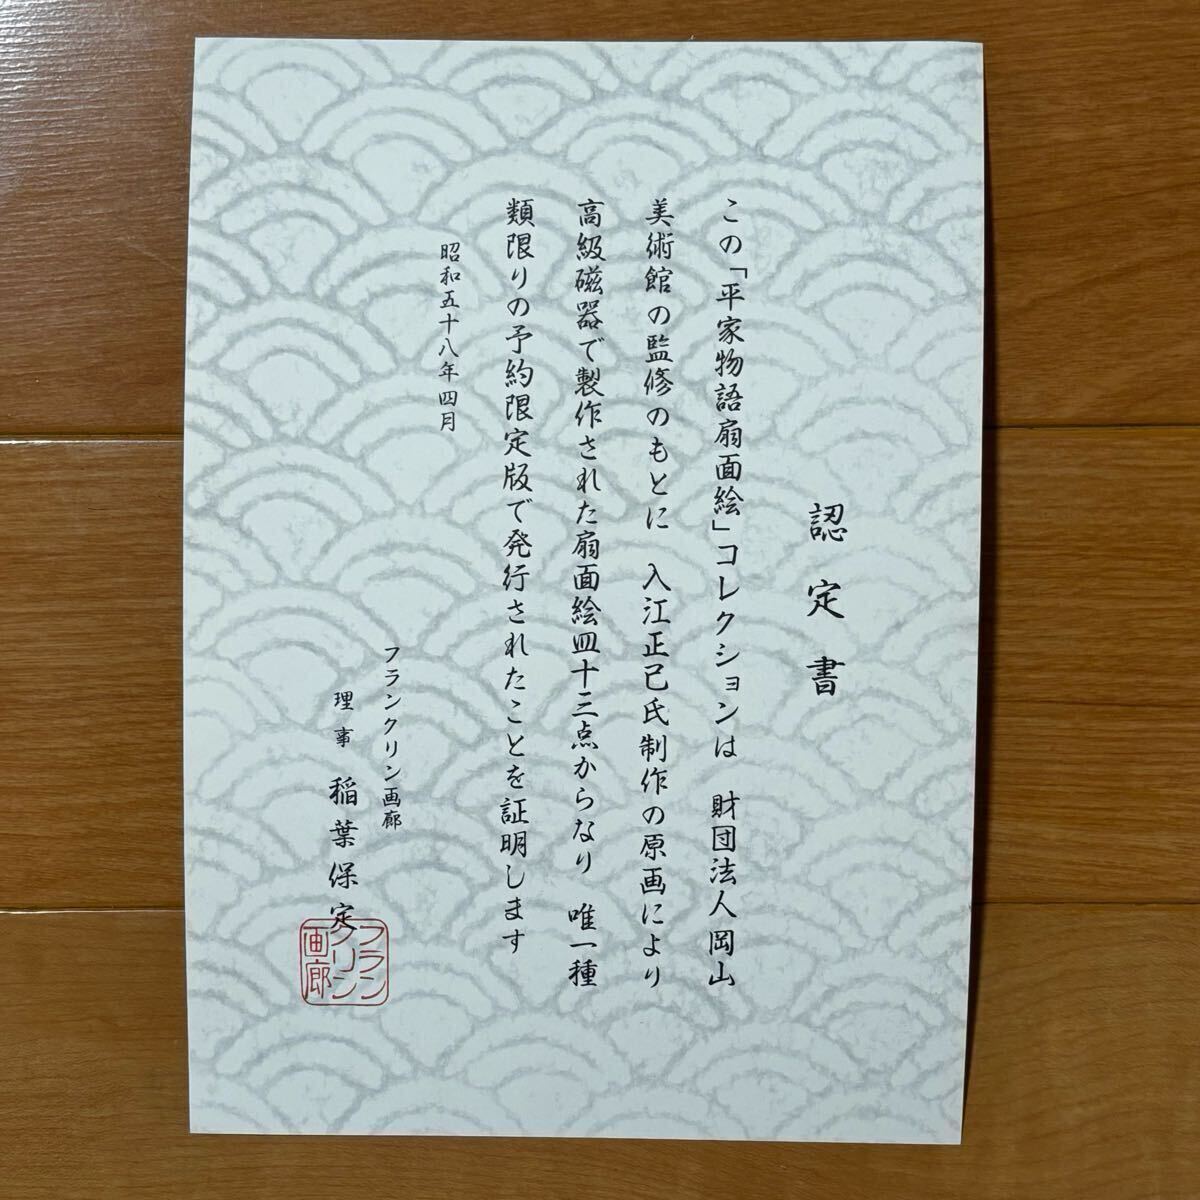 認定書
この「平家物語扇面絵」コレクションは 財団法人岡山
美術館の監修のもとに 入江正巳氏制作の原画により
高級磁器で製作された扇面絵四十三点からなり 唯一種
類限りの予約限定版で発行されたことを証明します
昭和五十八年四月
フランクリン画廊
理事 稲葉保定
フラン
クリン
画廊